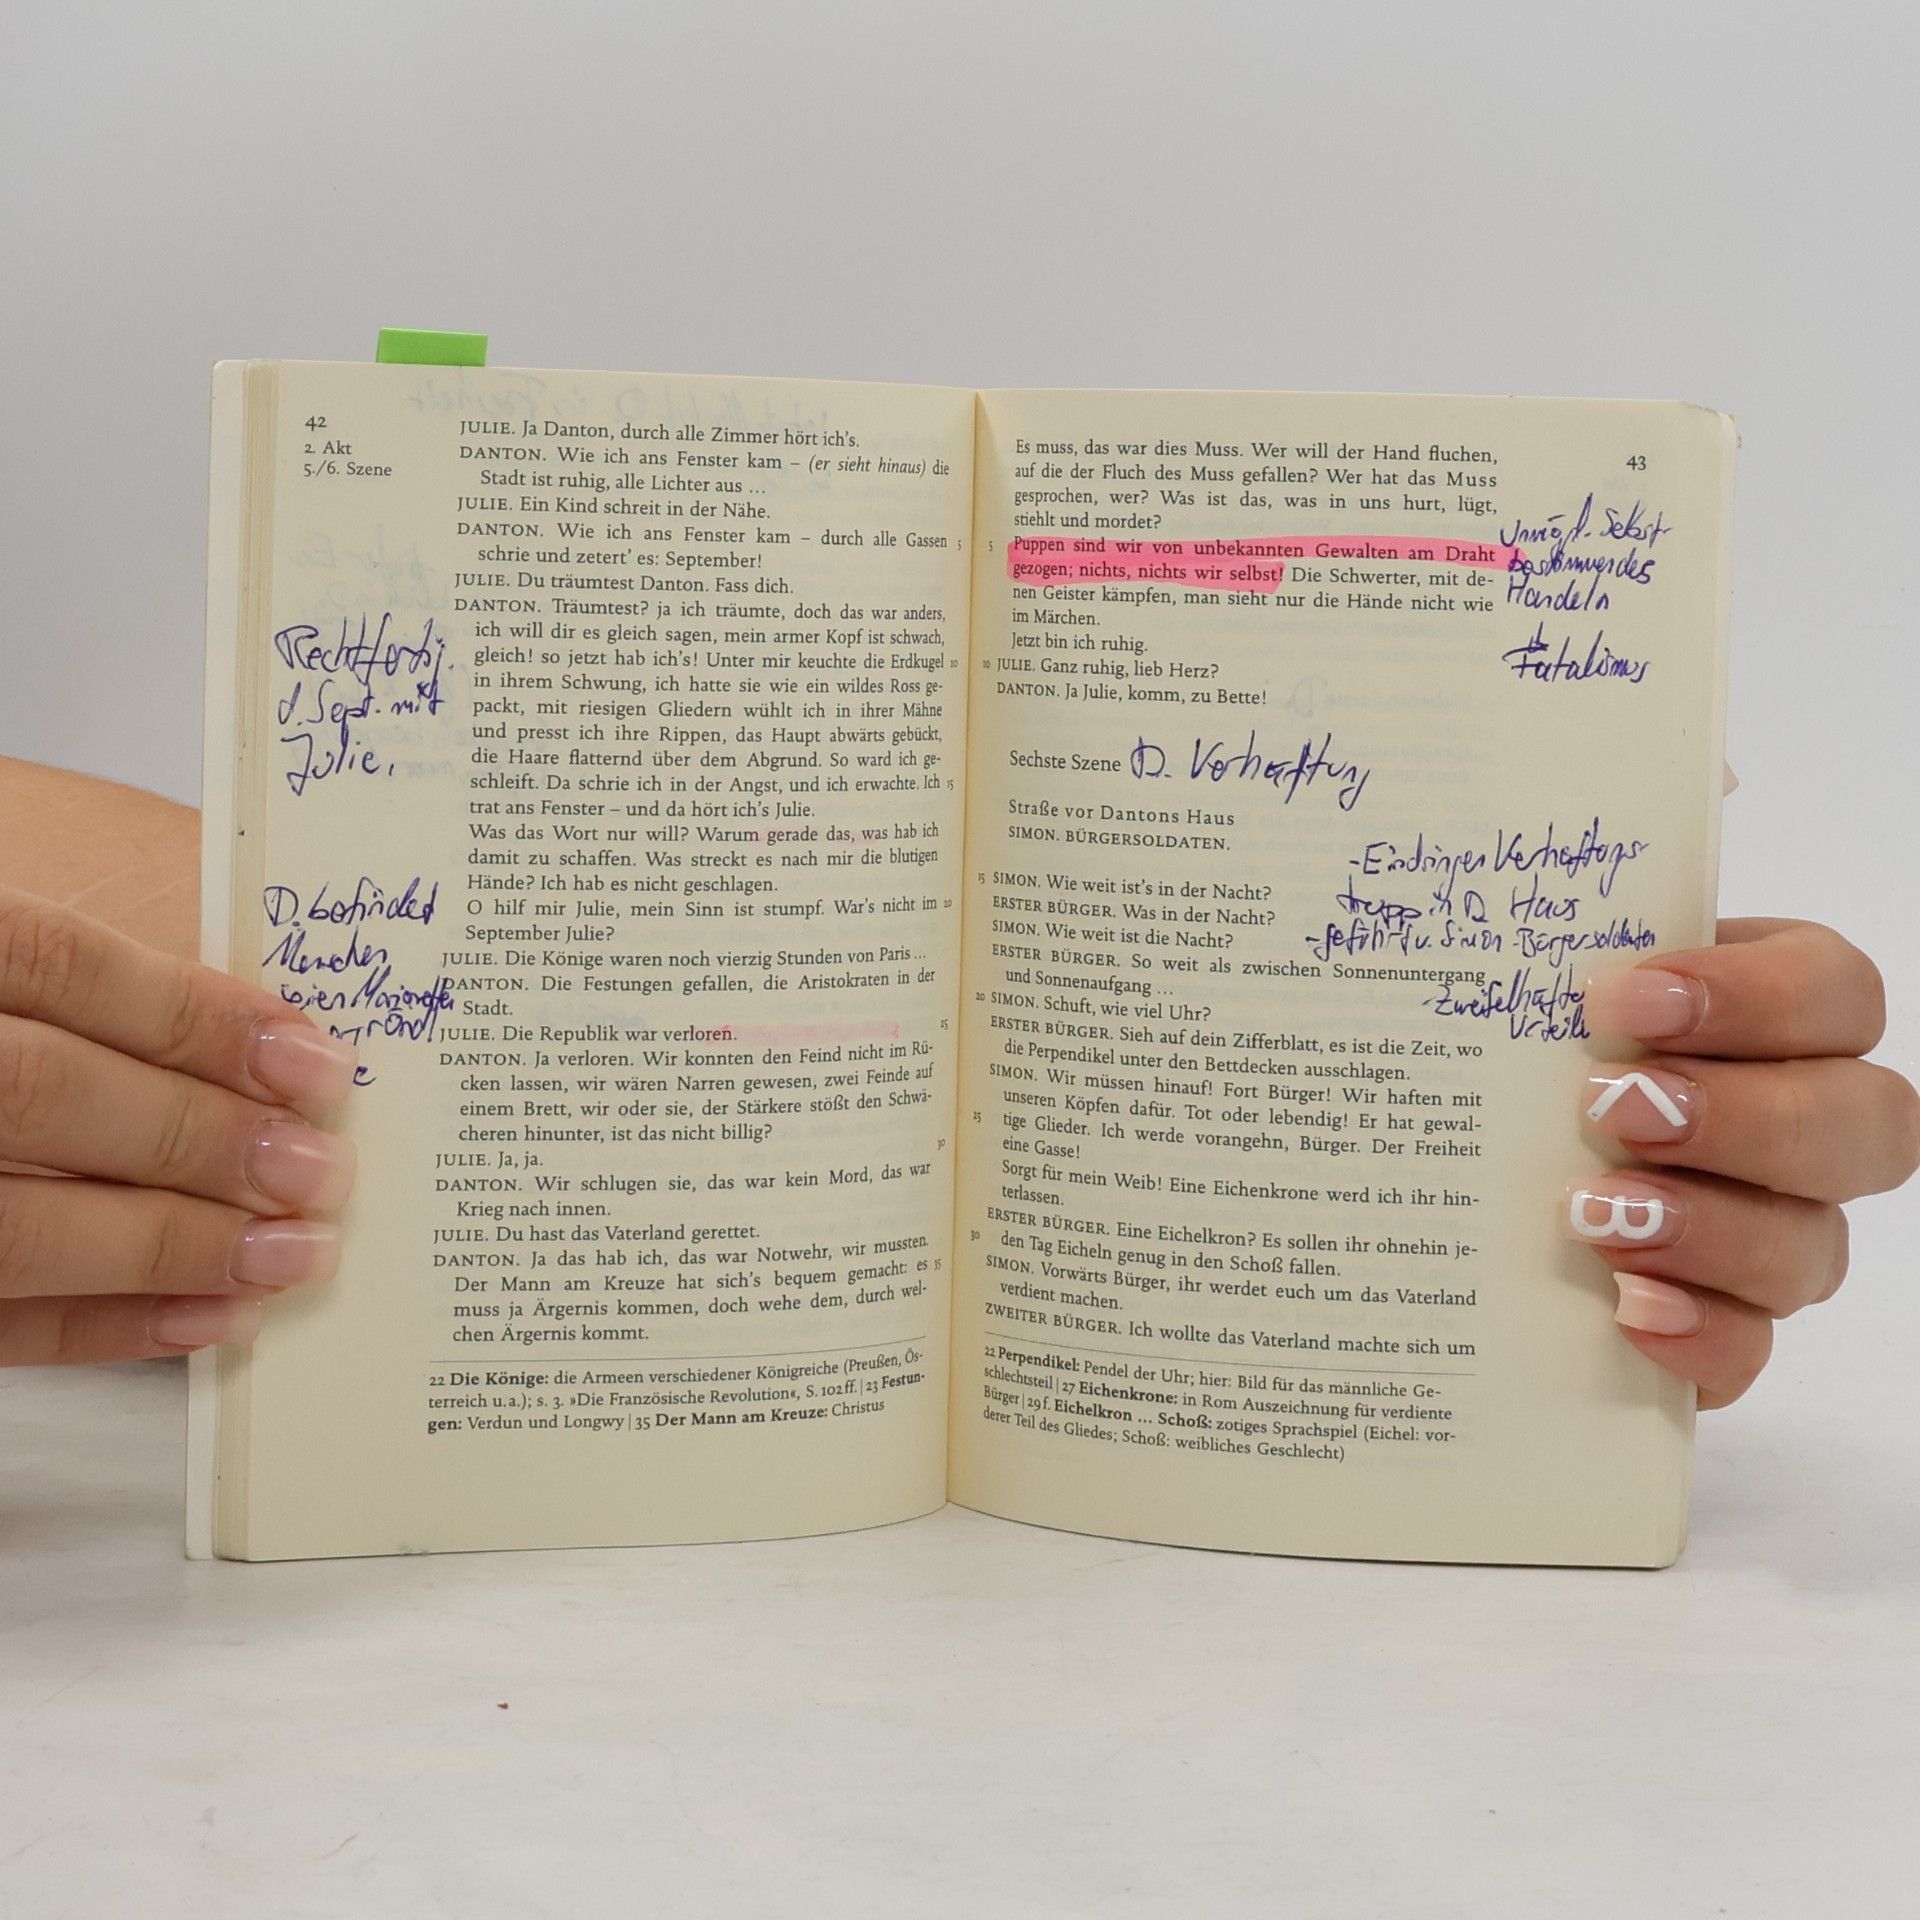 42
2. Akt
5./6. Szene
JULIE. Ja Danton, durch alle Zimmer hört ich's.
DANTON. Wie ich ans Fenster kam – (er sieht hinaus) die
Stadt ist ruhig, alle Lichter aus …
JULIE. Ein Kind schreit in der Nähe.
DANTON. Wie ich ans Fenster kam – durch alle Gassen 5
schrie und zetert' es: September!
JULIE. Du träumtest Danton. Fass dich.
DANTON. Träumtest? ja ich träumte, doch das war anders,
ich will dir es gleich sagen, mein armer Kopf ist schwach,
gleich! so jetzt hab ich's! Unter mir keuchte die Erdkugel 10
in ihrem Schwung, ich hatte sie wie ein wildes Ross ge-
packt, mit riesigen Gliedern wühlt ich in ihrer Mähne
und presst ich ihre Rippen, das Haupt abwärts gebückt,
die Haare flatternd über dem Abgrund. So ward ich ge-
schleift. Da schrie ich in der Angst, und ich erwachte. Ich 15
trat ans Fenster – und da hört ich's Julie.
Was das Wort nur will? Warum gerade das, was hab ich
damit zu schaffen. Was streckt es nach mir die blutigen
Hände? Ich hab es nicht geschlagen.
O hilf mir Julie, mein Sinn ist stumpf. War's nicht im 20
September Julie?
JULIE. Die Könige waren noch vierzig Stunden von Paris …
DANTON. Die Festungen gefallen, die Aristokraten in der
Stadt.
JULIE. Die Republik war verloren. 25
DANTON. Ja verloren. Wir konnten den Feind nicht im Rü-
cken lassen, wir wären Narren gewesen, zwei Feinde auf
einem Brett, wir oder sie, der Stärkere stößt den Schwä-
cheren hinunter, ist das nicht billig?
JULIE. Ja, ja. 30
DANTON. Wir schlugen sie, das war kein Mord, das war
Krieg nach innen.
JULIE. Du hast das Vaterland gerettet.
DANTON. Ja das hab ich, das war Notwehr, wir mussten.
Der Mann am Kreuze hat sich's bequem gemacht: es 35
muss ja Ärgernis kommen, doch wehe dem, durch wel-
chen Ärgernis kommt.
22 Die Könige: die Armeen verschiedener Königreiche (Preußen, Ös-
terreich u.a.); s. 3. »Die Französische Revolution«, S. 102 ff. | 23 Festun-
gen: Verdun und Longwy | 35 Der Mann am Kreuze: Christus
Rechtfertig.
d. Sept. mit
Julie.
D. befindet
Menschen
seien Marionetten
43
Es muss, das war dies Muss. Wer will der Hand fluchen,
auf die der Fluch des Muss gefallen? Wer hat das Muss
gesprochen, wer? Was ist das, was in uns hurt, lügt,
stiehlt und mordet?
5 Puppen sind wir von unbekannten Gewalten am Draht
gezogen; nichts, nichts wir selbst! Die Schwerter, mit de-
nen Geister kämpfen, man sieht nur die Hände nicht wie
im Märchen.
Jetzt bin ich ruhig.
10 JULIE. Ganz ruhig, lieb Herz?
DANTON. Ja Julie, komm, zu Bette!
Unmögl. Selbst-
bestimmendes
Handeln
Fatalismus
Sechste Szene D. Verhaftung
Straße vor Dantons Haus
SIMON. BÜRGERSOLDATEN.
15 SIMON. Wie weit ist's in der Nacht?
ERSTER BÜRGER. Was in der Nacht?
SIMON. Wie weit ist die Nacht?
ERSTER BÜRGER. So weit als zwischen Sonnenuntergang
und Sonnenaufgang …
20 SIMON. Schuft, wie viel Uhr?
ERSTER BÜRGER. Sieh auf dein Zifferblatt, es ist die Zeit, wo
die Perpendikel unter den Bettdecken ausschlagen.
SIMON. Wir müssen hinauf! Fort Bürger! Wir haften mit
unseren Köpfen dafür. Tot oder lebendig! Er hat gewal-
25 tige Glieder. Ich werde vorangehn, Bürger. Der Freiheit
eine Gasse!
Sorgt für mein Weib! Eine Eichenkrone werd ich ihr hin-
terlassen.
ERSTER BÜRGER. Eine Eichelkron? Es sollen ihr ohnehin je-
30 den Tag Eicheln genug in den Schoß fallen.
SIMON. Vorwärts Bürger, ihr werdet euch um das Vaterland
verdient machen.
ZWEITER BÜRGER. Ich wollte das Vaterland machte sich um
22 Perpendikel: Pendel der Uhr; hier: Bild für das männliche Ge-
schlechtsteil | 27 Eichenkrone: in Rom Auszeichnung für verdiente
Bürger | 29 f. Eichelkron … Schoß: zotiges Sprachspiel (Eichel: vor-
derer Teil des Gliedes; Schoß: weibliches Geschlecht)
-Eindringen Verhaftungs-
trupp in D. Haus
-geführt v. Simon -Bürgersoldaten
-Zweifelhafte
Urteile
K
B